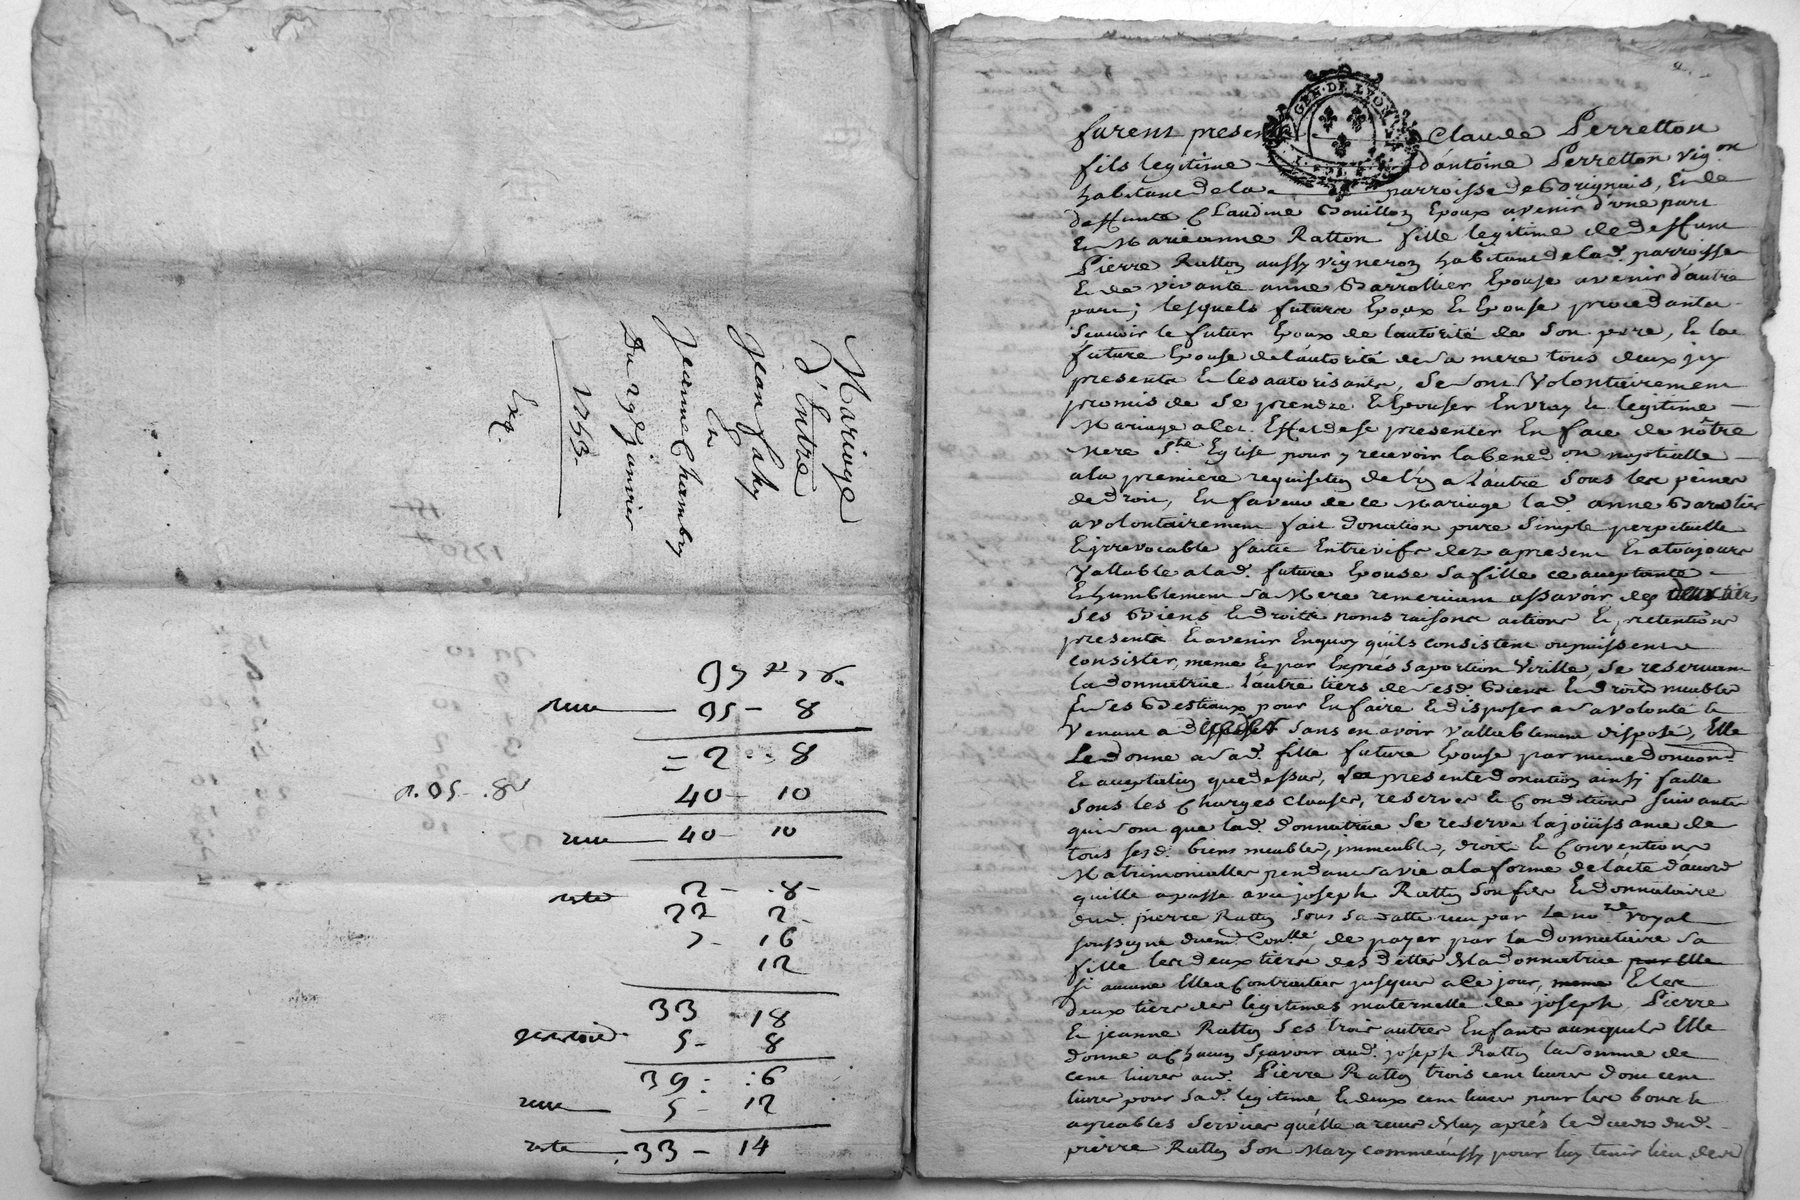 Mariage
D'Entre
Jean faky
Et
Jeanne Chambry
Du 29e janvier
1753
Exp.
reçu 50 - 8
= 2 .. 8
40 - 10
reçu 40 - 10
reste 2 - 8
22 2
7 - 16
12
33 18
5 - 8
39 : 6
reçu 5 - 12
reste 33 - 14
8. - 50.
GEN. DE LYON
furent presens Claude Perretton
fils legitime d'antoine Perretton vig.on
habitant de la parroisse de Grignais, Et de
deffunte Claudine Bouillon Epoux avenir d'une part
Et Marieanne Ratton fille legitime de deffunt
Pierre Ratton aussy vigneron habitant de lad. parroisse
Et de vivante anne Barrollier Epouse avenir d'autre
part; lesquels futurs Epoux Et Epouse procedants
scavoir le futur Epoux de l'autorité de son pere, Et la
future Epouse de l'autorité de sa mere tous deux jcy
presents Et les autorisants, se sont volontairement
promis de se prendre Et Epouser En vray Et legitime
Mariage a cet Effet de se presenter En face de nôtre
Mere Ste Eglise pour y recevoir la bened.on nuptialle
a la premiere requisition de l'un a l'autre sous les peines
de droit, En faveur de ce Mariage lad. anne Barollier
a volontairement fait donation pure simple perpetuelle
Et jrrevocable faitte Entrevifs dez a present Et a toujours
vallable a lad. future Epouse sa fille ce acceptante
Et humblement sa Mere remerciant assavoir des deux tiers
ses Biens Et droits noms raisons actions Et pretentions
presents Et avenir Enquoy qu'ils consistent ou puissent
consister, meme Et par Exprés sa portion virille, se reservant
la donnatrice l'autre tiers de sesd. Biens Et droits meubles
Et ses Bestiaux pour En faire Et disposer a sa volonté Et
venant a deceder sans en avoir vallablement disposé, Elle
Le donne a sad. fille future Epouse par meme donaon.
Et acceptation que dessus, La presente donation ainsy faitte
sous les Charges clauses, reserves Et Conditions suivantes
qui sont que lad. donnatrice se reserve la joüissance de
tous sesd. biens meubles, jmmeubles, droits Et Conventions
Matrimonielles pendant sa vie a la forme de l'acte d'accord
qu'elle a passé avec joseph Ratton son fils Et donnataire
dud. pierre Ratton sous sa datte reçu par Le no.re royal
soussigné duem.t Con.llé, de payer par la donnataire sa
fille les deux tiers des dettes de la donnatrice par Elle
si aucune Elle a Contractées jusques a Ce jour, meme Et les
deux tiers des legitimes maternelle de joseph, Pierre
Et jeanne Ratton ses trois autres Enfants auxquels Elle
donne a chacun sçavoir aud. joseph Ratton la somme de
cent livres aud. Pierre Ratton trois cent livres dont cent
livres pour sad. legitime Et deux cent livres pour les bons Et
agreables services qu'elle a receus de luy aprés le deceds dud.
pierre Ratton son Mary comme aussy pour luy tenir lieu des